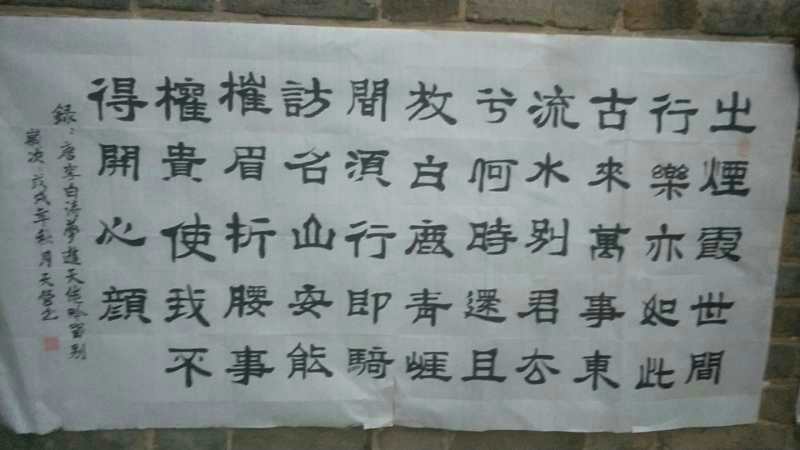 之煙霞世間
行樂亦如此
古來萬事東
流水別君去
兮何時還且
放白鹿青崕
間須行即騎
訪名山安能
摧眉折腰事
權貴使我不
得開心顔
録:唐李白詩夢遊天姥吟留别
歲次戊戌年秋月天